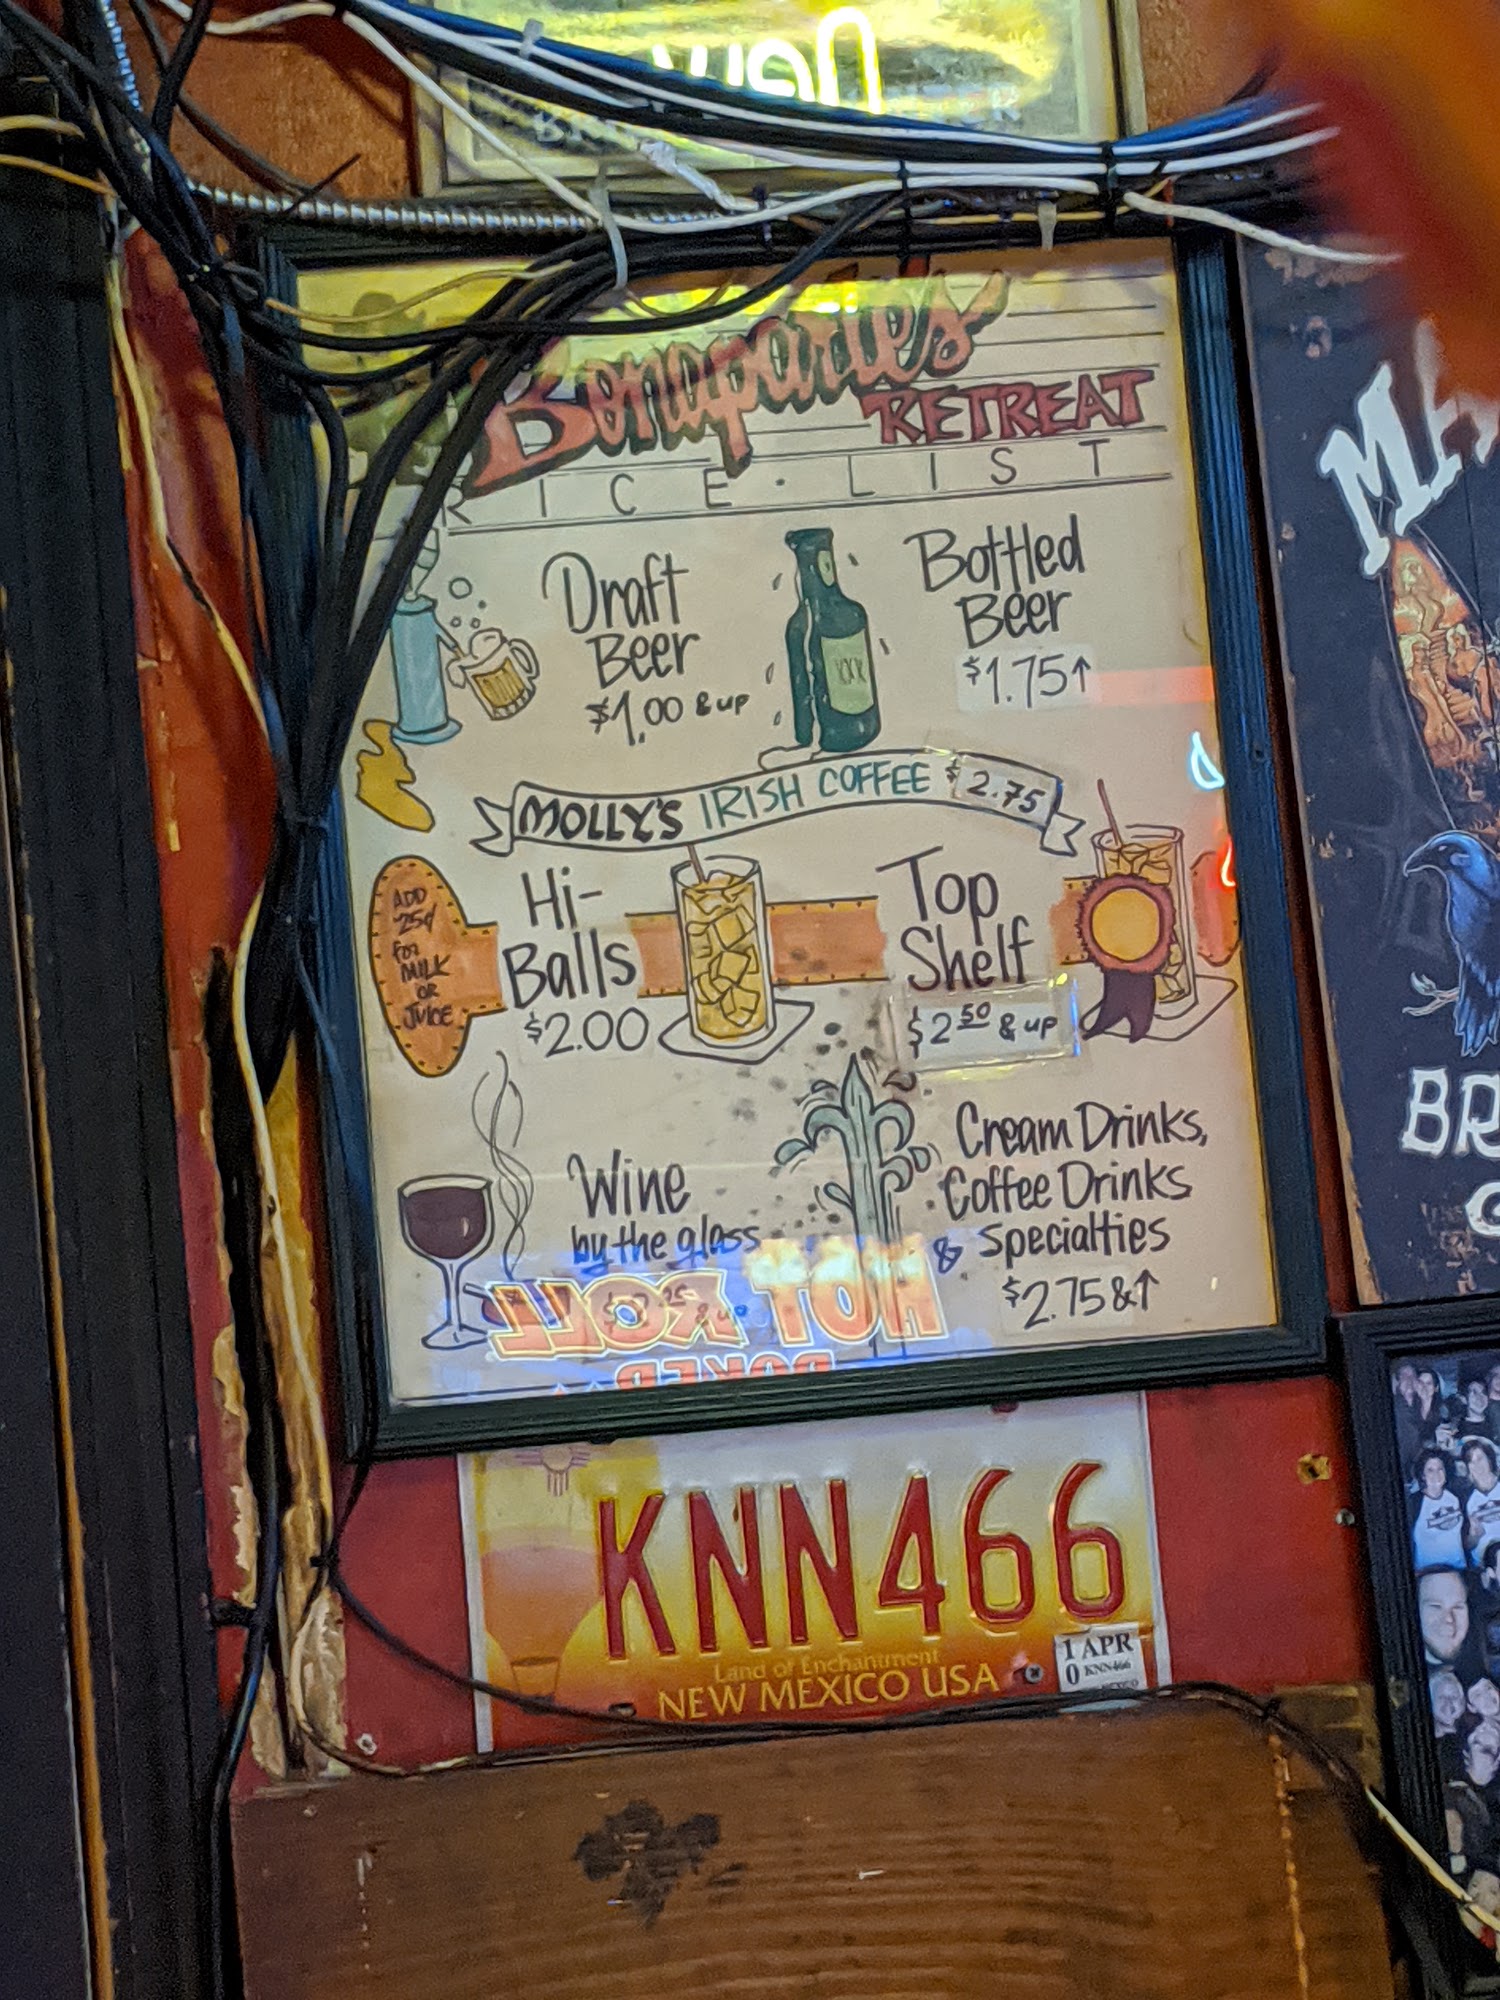 Bonaparte's
RETREAT
RICE · LIST
Draft
Beer
$1.00 & up
Bottled
Beer
$1.75↑
XXX
MOLLY'S IRISH COFFEE $2.75
ADD
25¢
for
MILK
OR
JUICE
Hi-
Balls
$2.00
Top
Shelf
$2.50 & up
Wine
by the glass
& up
Cream Drinks,
Coffee Drinks
& Specialties
$2.75&↑
HOT ROLL
POKER
KNN466
Land of Enchantment
NEW MEXICO USA
1 APR
0 KNN466
MA
BR